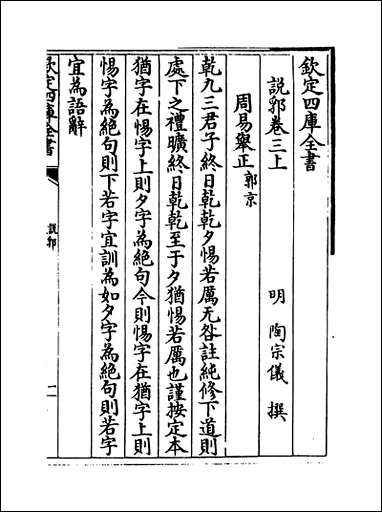 欽定四庫全書
說郛卷三上
明 陶宗儀 撰
周易舉正郭京
乾九三君子終日乾乾夕惕若厲无咎註純修下道則
處下之禮曠終日乾乾至于夕猶惕若厲也謹按定本
猶字在惕字上則夕字為絶句今則惕字在猶字上則
惕字為絶句則下若字宜訓為如夕字為絶句則若字
宜為語辭
欽定四庫全書
說郛